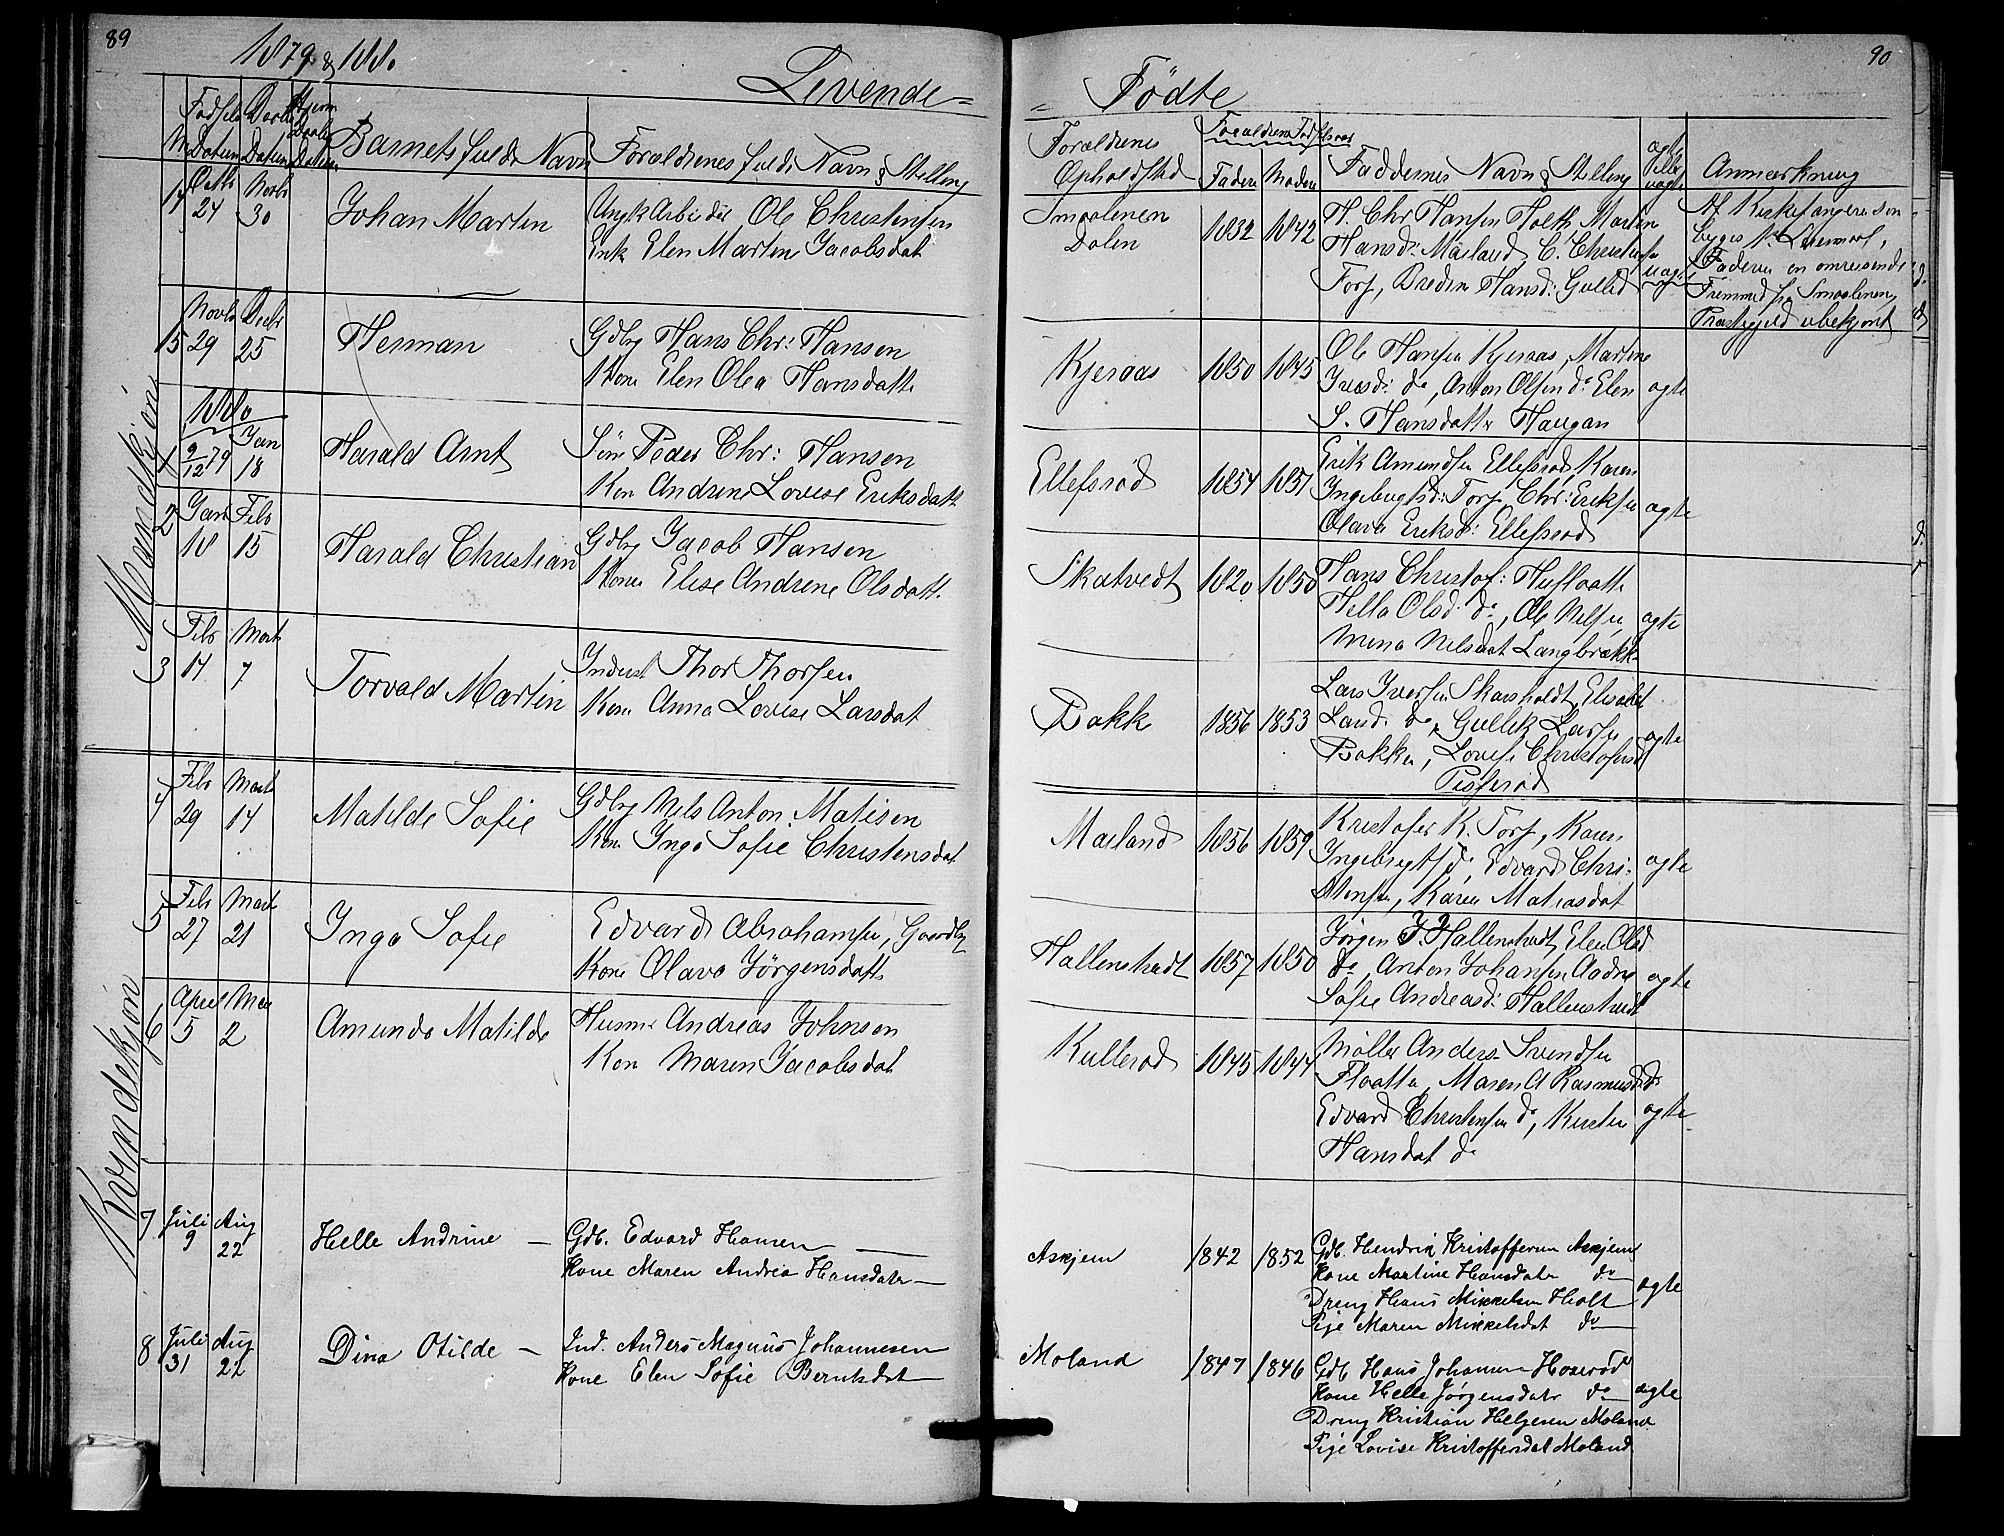 89
1879 & 1880
Levende
Födte
90
Fødsels Datum
Daabs Datum
Hjemme Daabs Datum
Barnets fulde Navn
Forældrenes fulde Navn & Stilling
Forældrenes Opholdsted
Forældrenes Fødselsaar
Fadder Moder
Faddernes Navn & Stilling
Anmærkning
Mandkjön
14
Octbr 24
Novbr 30
Johan Martin
Ungk Arbeider Ole Christensen
Enk Elen Martine Jacobsdat
Smaalenen
Dalen
1832 1842
H. Chr Hansen Holth, Martin
Hansd: Mæland, C. Christofs
Torp, Hansd: Gulled
uægte
Af Kirkesanger
Faderen en omreisende
Fremmed fra Smaalenen
Præstegjeld ubekjent
15
Novbr 29
Decbr 25
Herman
Gdbr Hans Chr: Hansen
Kone Elen Olea Hansdatter
Kjeraas
1850 1845
Ole Hansen Kjeraas, Martine
Iversd: do, Anton Olsen do Elen
S. Hansdatter Haugan
ægte
1880
1
9/12 79
Jan 18
Harald Arnt
Søm Peder Chr: Hansen
Kon Andrine Lovise Eriksdatt
Ellefsrød
1854 1851
Erik Amundsen Ellefsrød, Karen
Ingebrigtsd: Torp, Chr: Eriksen
Olava Eriksd: Ellefsrød
ægte
2
Jan 18
Feb 15
Harald Christian
Gdbr Jacob Hansen
Kone Elise Andrine Olsdatt.
Skatvedt
1820 1850
Hans Christof:
Hella Olsd. do, Ole Nilsen
Mina Nilsdat Langbrække
ægte
3
Feb 14
Mart 7
Torvald Martin
Inderst Thor Thorsen
Kone Anna Lovise Larsdat
Bakk
1856 1853
Lars Iversen Skarsholdt, Elisabet
Larsd. do, Gullik Larsen
Bakken, Lovise Christofersd
ægte
Kvindekjön
4
Feb 29
Mart 14
Matilde Sofie
Gdbr Nils Anton Matisen
Kone Inga Sofie Christensdat
Mæland
1856 1859
Kristofer K. Torp, Karen
Ingebregts do, Edvard Chri-
stensen, Karen Matiasdat
ægte
5
Feb 27
Mart 21
Inga Sofie
Edvard Abrahamsen, Gaardbr
Kone Olava Jörgensdatt
Hallenstvedt
1857 1850
Jörgen J. Hallenstvedt, Elen Olsd
do, Anton Johansen Aadne
Sofie Andreasd: Hallenstvedt
ægte
6
April 5
Mai 2
Amunda Matilde
Husm: Andreas Johnsen
Kon Maren Jacobsdat
Kullerød
1845 1844
Møller Anders Svendsen
Flaatten, Maren A Rasmusd do
Edvard Christensen do, Kirsten
Hansdat do
ægte
7
Juli 9
Aug 22
Helle Andrine —
Gdb. Edvard Hansen —
Kone Maren Andrea Hansdatr —
Askjem
1842 1852
Gdb. Hendrik Kristoffersen Askjem
Kone Martine Hansdatr do
Dreng Hans Mikkelsen Holt
Pige Maren Mikkelsdat do
ægte
8
Juli 31
Aug 22
Dina Otilde —
Ind. Anders Magnus Johannesen
Kone Elen Sofie Berntsdat —
Moland
1847 1846
Gdb Hans Johansen Hoserød
Kone Helle Jørgensdatr do
Dreng Kristian Helgesen Moland
Pige Lovise Kristoffersdat Moland
ægte